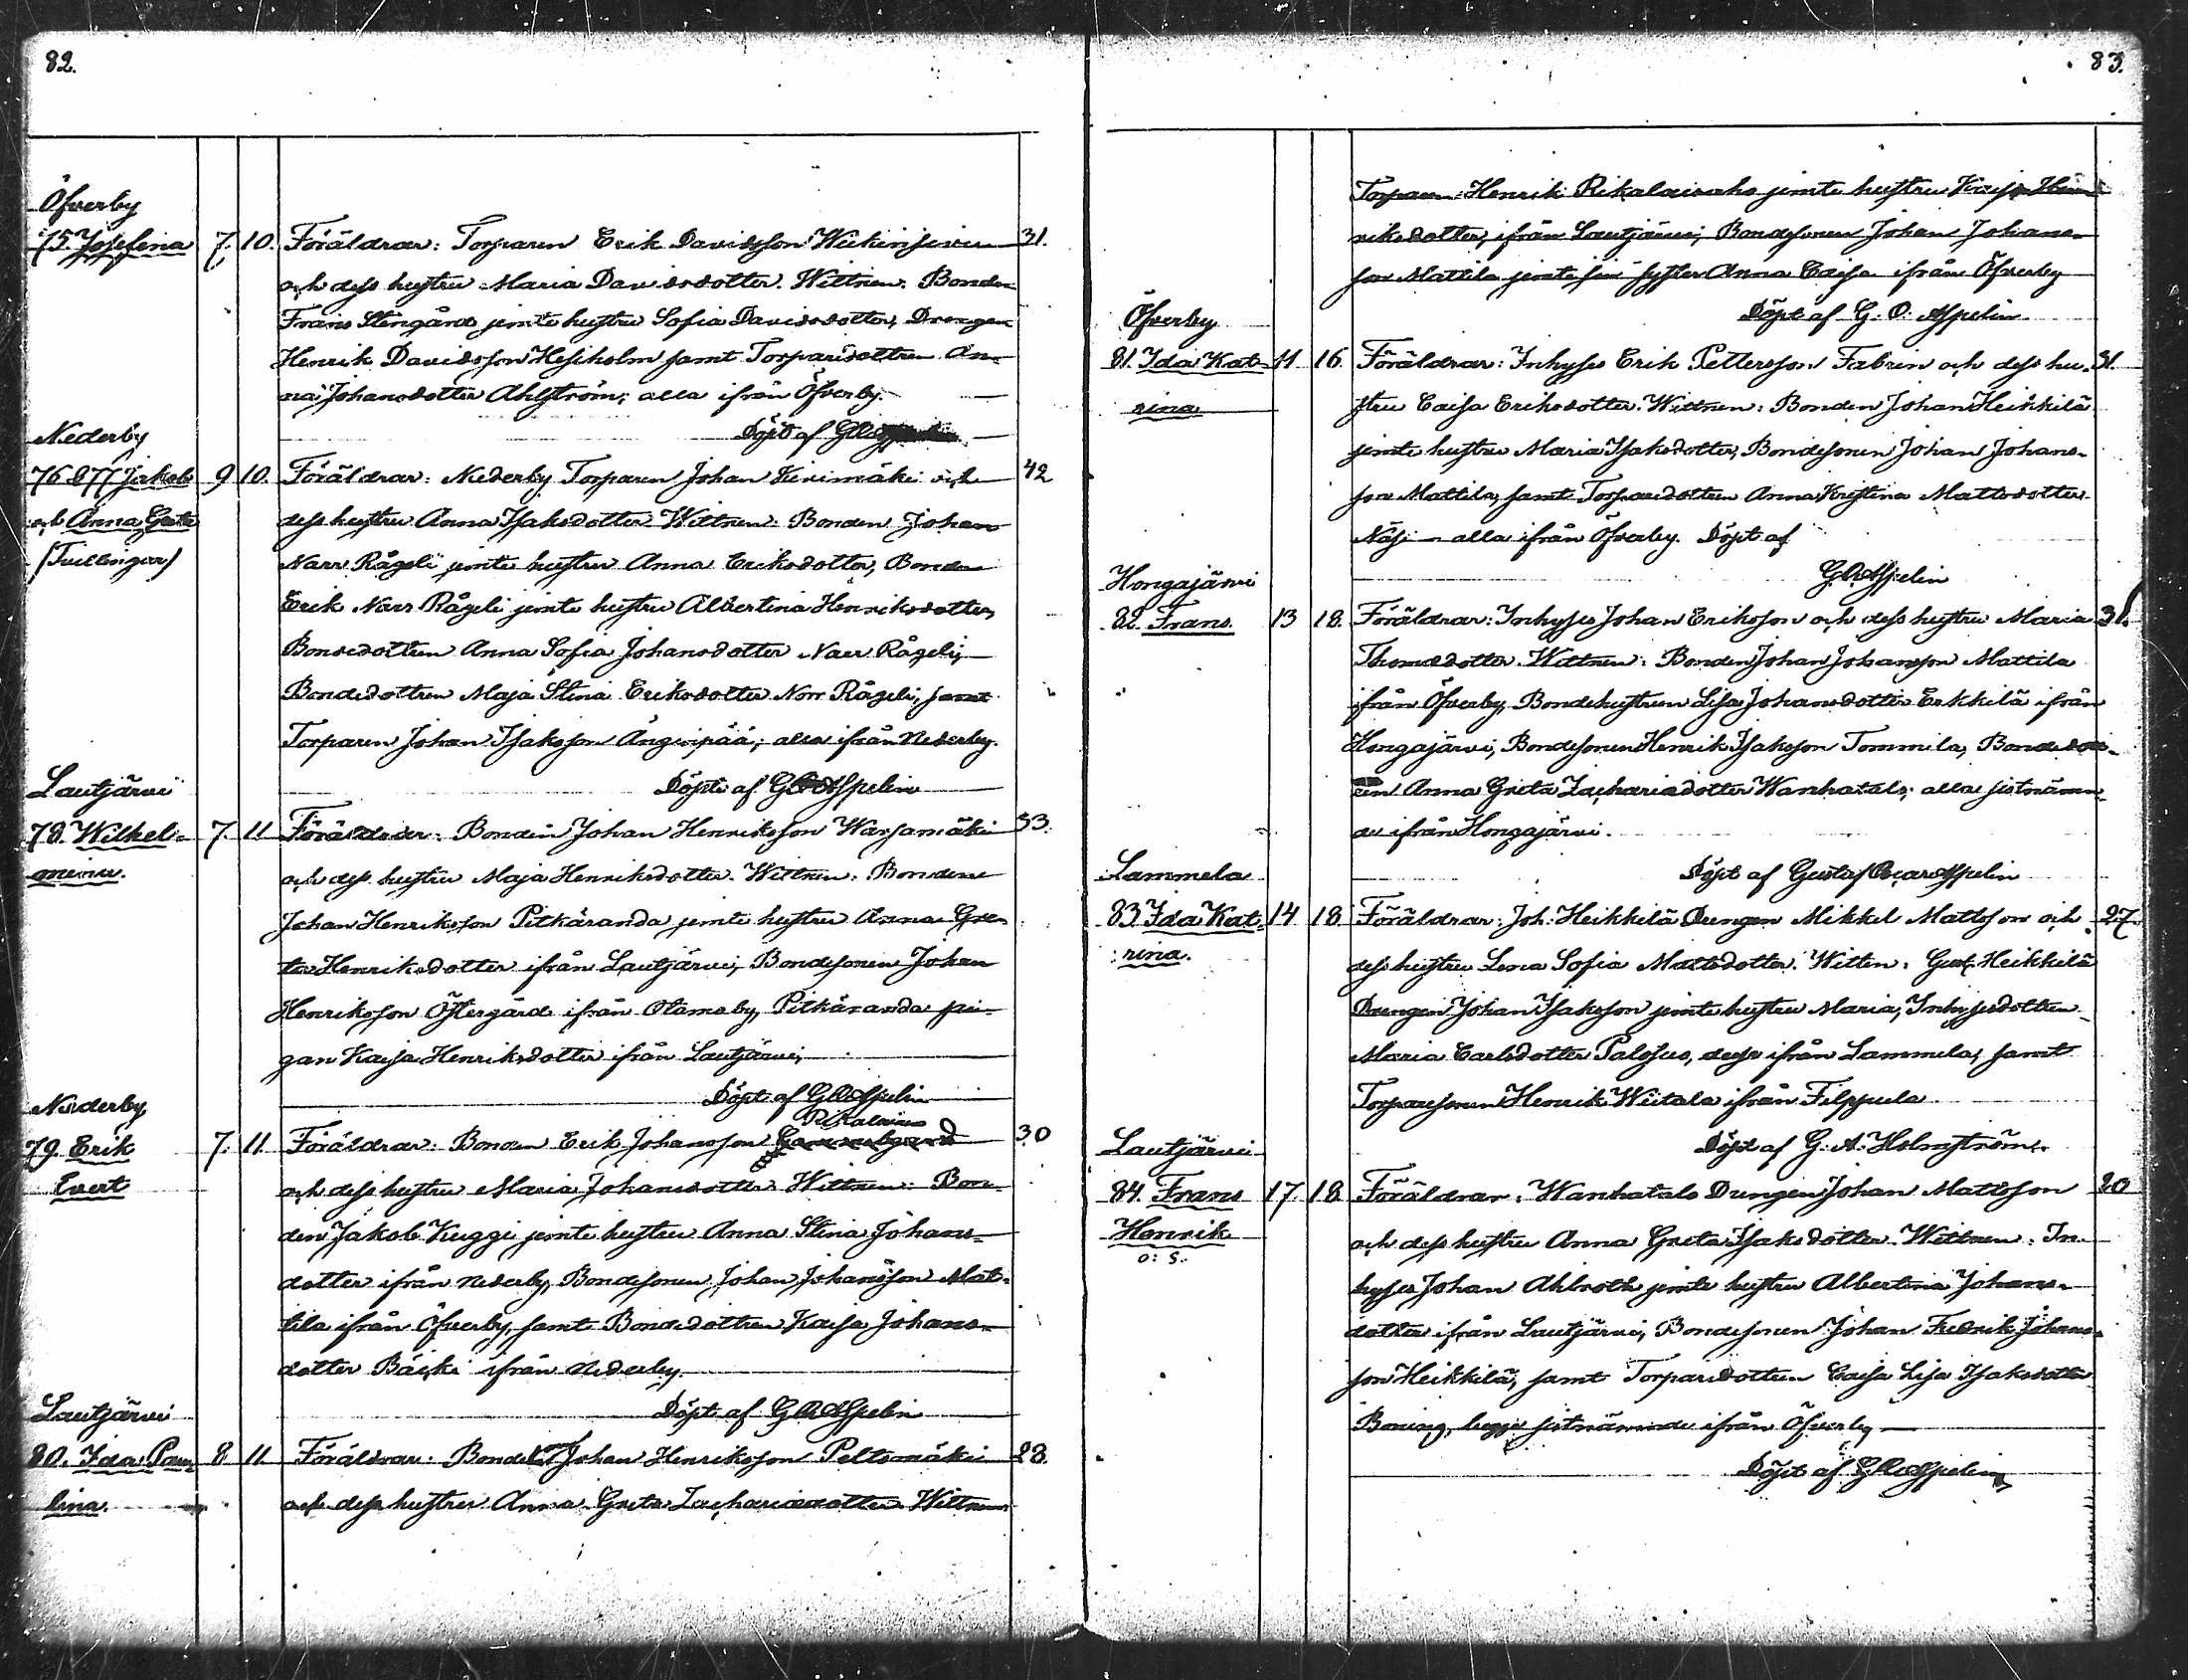 82.
Öfverby
75. Josefina 7. 10. Föräldrar: Torparen Erik Davidsson 31.
och dess hustru Maria Davidsdotter. Wittnen: Bonden
Frans Stengård jemte hustru Sofia Davidsdotter, Drengen
Henrik Davidsson Hesiholm samt Torparedottren An-
na Johansdotter Ahlström; alla ifrån Öfverby.
Döpt af
Nederby
76 & 77 Jakob 9 10. Föräldrar: Nederby Torparen Johan Kivimäki och 42
och Anna Greta dess hustru Anna Isaksdotter Wittnen: Bonden Johan
(Tvillingar) Narr Rågeli jemte hustru Anna Eriksdotter, Bonden
Erik Narr Rågeli jemte hustru Albertina Henriksdotter,
Bondedottren Anna Sofia Johansdotter Narr Rågeli,
Bondedottren Maja Stina Eriksdotter Norr Rågeli, samt
Torparen Johan Isaksson Ångeripää; alla ifrån Nederby.
Döpte af G O Aspelin
Lautjärvi
78. Wilhel- 7. 11 Föräldrar: Bonden Johan Henriksson Warsamäki 33.
mina. och dess hustru Maja Henriksdotter. Wittnen: Bonden
Johan Henriksson Pitkäranda jemte hustru Anna Gre-
ta Henriksdotter ifrån Lautjärvi, Bondesonen Johan
Henriksson Östergård ifrån Otamaby, Pitkäranda pi-
gan Kajsa Henriksdotter ifrån Lautjärvi,
Döpt af G O Aspelin
Nederby
79. Erik 7. 11. Föräldrar: Bonden Erik Johansson Gammelgård 30
Evert och dess hustru Maria Johansdotter Wittnen: Bon-
den Jakob Kuggi jemte hustru Anna Stina Johans-
dotter ifrån Nederby, Bondesonen Johan Johansson Mat-
tila ifrån Öfverby, samt Bondedottren Kajsa Johans-
dotter Bäcki ifrån Nederby.
Döpt af G O Aspelin
Lautjärvi
80. Ida Pau- 8 11 Föräldrar: Bondesonen Johan Henriksson Peltomäki 28.
lina. och dess hustru Anna Greta Zachariadotter Wittnen:
83.
Torparen Henrik Rikalaisaho jemte hustru Kajsa Hen-
riksdotter, ifrån Lautjärvi, Bondesonen Johan Johans-
son Mattila jemte sin syster Anna Caisa ifrån Öfverby
Döpt af G. O. Aspelin
Öfverby
81. Ida Kat- 11 16. Föräldrar: Inhyses Erik Pettersson Fabrin och dess hu- 31.
rina stru Caisa Eriksdotter. Wittnen: Bonden Johan Heikkilä
jemte hustru Maria Isaksdotter, Bondesonen Johan Johans-
son Mattila, samt Torparedottren Anna Kristina Mattsdotter
Näsi — alla ifrån Öfverby. Döpt af
G O Aspelin
Hongajärvi
82. Frans. 13 18. Föräldrar: Inhyses Johan Eriksson och dess hustru Maria 31.
Thomasdotter. Wittnen: Bonden Johan Johansson Mattila
ifrån Öfverby, Bondehustrun Lisa Johansdotter Erkkilä ifrån
Hongajärvi, Bondesonen Henrik Isaksson Tommila, Bondedott-
ren Anna Greta Zachariadotter Wanhatalo; alla sistnämn-
de ifrån Hongajärvi.
Döpt af Gustaf Oscar Aspelin
Lammela
83. Ida Kat- 14 18. Föräldrar: Joh. Heikkilä Drengen Mikkel Mattsson och 27.
rina. dess hustru Lena Sofia Mattsdotter. Wittn: Gust. Heikkilä
Drengen Johan Isaksson jemte hustru Maria, Inhysesdottren
Maria Carlsdotter Palosus, desse ifrån Lammela, samt
Torparesonen Henrik Wiitala ifrån Filppula.
Döpt af G. A. Holmström.
Lautjärvi
84. Frans 17. 18. Föräldrar: Wanhatalo Drengen Johan Mattsson 20
Henrik och dess hustru Anna Greta Isaksdotter. Wittnen: In-
o: s: hyses Johan Ahlroth jemte hustru Albertina Johans-
dotter ifrån Lautjärvi, Bondesonen Johan Fredrik Johans-
son Heikkilä, samt Torparedottren Caisa Lisa Isaksdotter
Boning, begge sistnämnde ifrån Öfverby
Döpt af G O Aspelin